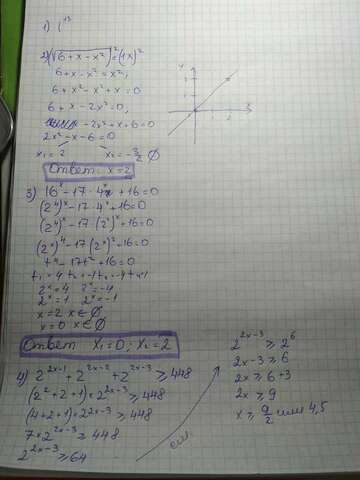 1) i¹³
2) (√6+x-x²)² = (1x)²
6+x-x² = x²;
6+x²-x²+x=0
6+x-2x²=0;
-2x²+x+6=0
2x²-x-6=0
x₁=2 x₂=-3/2 ∅
Ответ: x=2
3) 16ˣ-17·4ˣ+16=0
(2⁴)ˣ-17·4ˣ+16=0
(2⁴)ˣ-17·(2²)ˣ+16=0
(2ˣ)⁴-17(2ˣ)²+16=0
t⁴-17t²+16=0
2ˣ=4 2ˣ=-4
2ˣ=1 2ˣ=-1
x=2 x∈∅
x=0 x∈∅
Ответ x₁=0; x₂=2
4) 2^(2x-1)+2^(2x-2)+2^(2x-3)≥448
(2²+2+1)·2^(2x-3)≥448
(4+2+1)·2^(2x-3)≥448
7·2^(2x-3)≥448
2^(2x-3)≥64
2^(2x-3)≥2⁶
2x-3≥6
2x≥6+3
2x≥9
x≥9/2 или 4,5